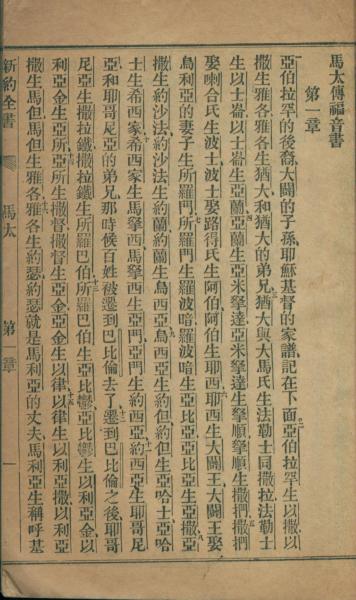 馬太傳福音書
第一章
亞伯拉罕的後裔大闢的子孫耶穌基督的家譜記在下面亞伯拉罕生以撒以
撒生雅各雅各生猶大和猶大的弟兄猶大與大馬氏生法勒士同撒拉法勒士
生以士崙以士崙生亞蘭亞蘭生亞米拏達亞米拏達生拏順拏順生撒捫撒捫
娶喇合氏生波士波士娶路得氏生阿伯阿伯生耶西耶西生大闢王大闢王娶
烏利亞的妻子生所羅門所羅門生羅波暗羅波暗生亞比亞亞比亞生亞撒亞
撒生約沙法約沙法生約蘭約蘭生烏西亞烏西亞生約但約但生亞哈士亞哈
士生希西家希西家生馬拏西馬拏西生亞們亞們生約西亞約西亞生耶哥尼
亞和耶哥尼亞的弟兄那時候百姓被遷到巴比倫去了遷到巴比倫之後耶哥
尼亞生撒拉鐵撒拉鐵生所羅巴伯所羅巴伯生亞比鬱亞比鬱生以利亞金以
利亞金生亞所亞所生撒督撒督生亞金亞金生以律以律生以利亞撒以利亞
撒生馬但馬但生雅各雅各生約瑟約瑟就是馬利亞的丈夫馬利亞生稱呼基
新約全書 馬太 第一章 一